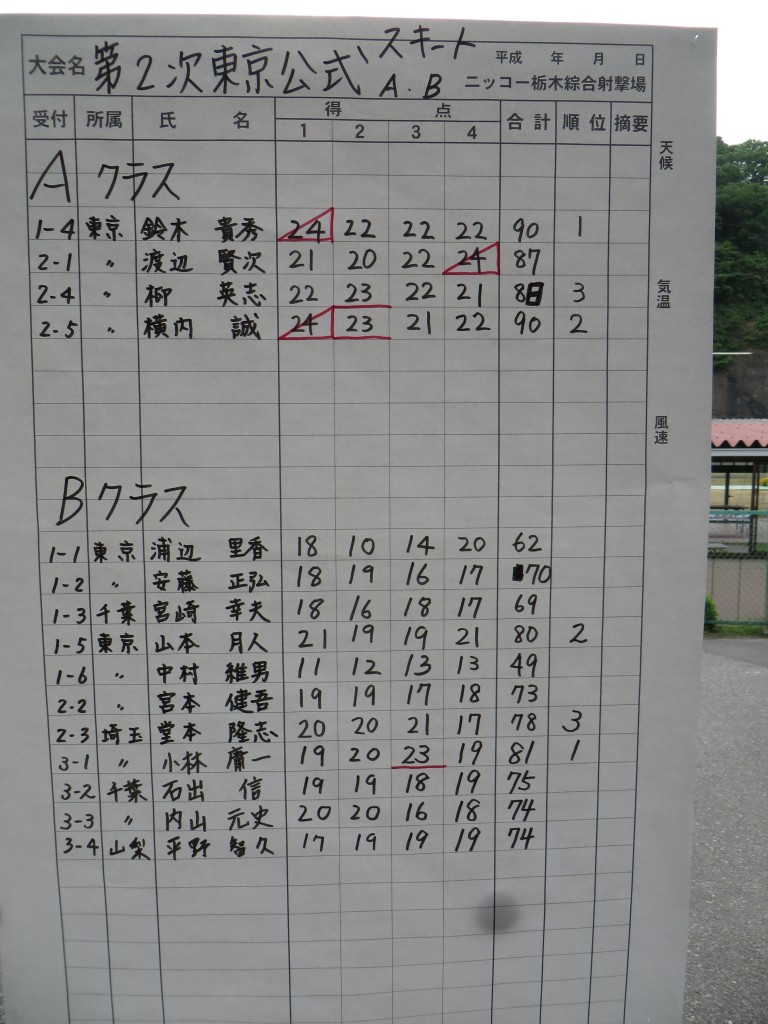 大会名 第2次東京公式、スキート A.B 平成 年 月 日
ニッコー栃木綜合射撃場
受付 所属 氏 名 得 点 合計 順位 摘要
1 2 3 4
天候
気温
風速
A クラス
1-4 東京 鈴木 貴秀 24 22 22 22 90 1
2-1 〃 渡辺 賢次 21 20 22 24 87
2-4 〃 柳 英志 22 23 22 21 88 3
2-5 〃 横内 誠 24 23 21 22 90 2
B クラス
1-1 東京 浦辺 里香 18 10 14 20 62
1-2 〃 安藤 正弘 18 19 16 17 70
1-3 千葉 宮崎 幸夫 18 16 18 17 69
1-5 東京 山本 月人 21 19 19 21 80 2
1-6 〃 中村 維男 11 12 13 13 49
2-2 〃 宮本 健吾 19 19 17 18 73
2-3 埼玉 堂本 隆志 20 20 21 17 78 3
3-1 〃 小林 庸一 19 20 23 19 81 1
3-2 千葉 石出 信 19 19 18 19 75
3-3 〃 内山 元史 20 20 16 18 74
3-4 山梨 平野 智久 17 19 19 19 74